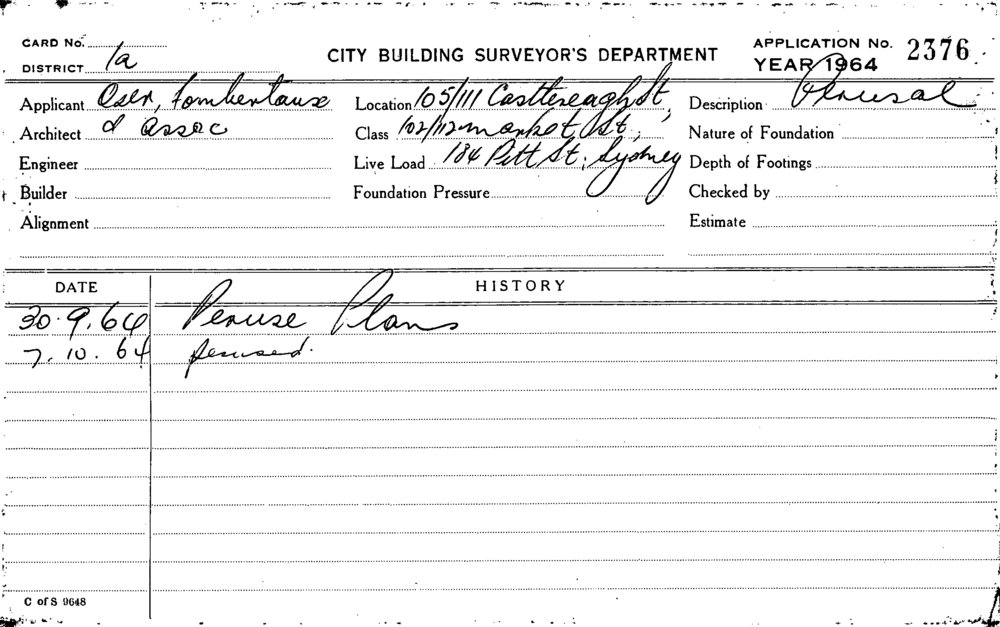 CARD No.
DISTRICT 1a
CITY BUILDING SURVEYOR'S DEPARTMENT
APPLICATION No. 2376
YEAR 1964
Applicant Oser, Fombertaux
Architect & Assoc
Engineer
Builder
Alignment
Location 105/111 Castlereagh St,
Class 102/112 market St,
Live Load 184 Pitt St. Sydney
Foundation Pressure
Description Perusal
Nature of Foundation
Depth of Footings
Checked by
Estimate
DATE HISTORY
30.9.64 Peruse Plans
7.10.64 perused.
C of S 9648